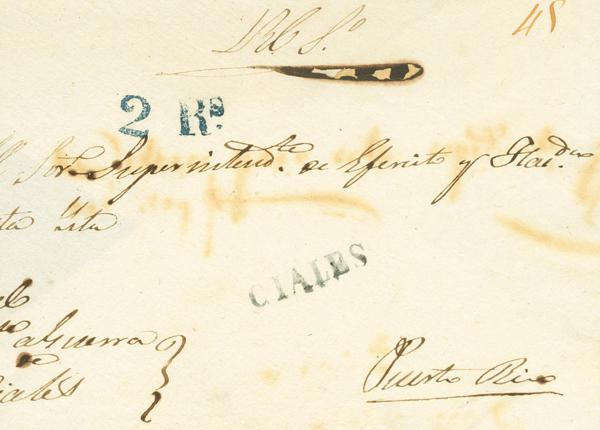 45
2 Rs.
Sor. Superintendte. de Egercito y Hacda.
Ysla
CIALES
Guerra
de
Ciales
Puerto Rico